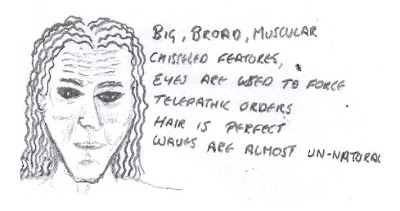 BIG, BROAD, MUSCULAR
CHISELED FEATURES,
EYES ARE USED TO FORCE
TELEPATHIC ORDERS
HAIR IS PERFECT
WAVES ARE ALMOST UN-NATURAL